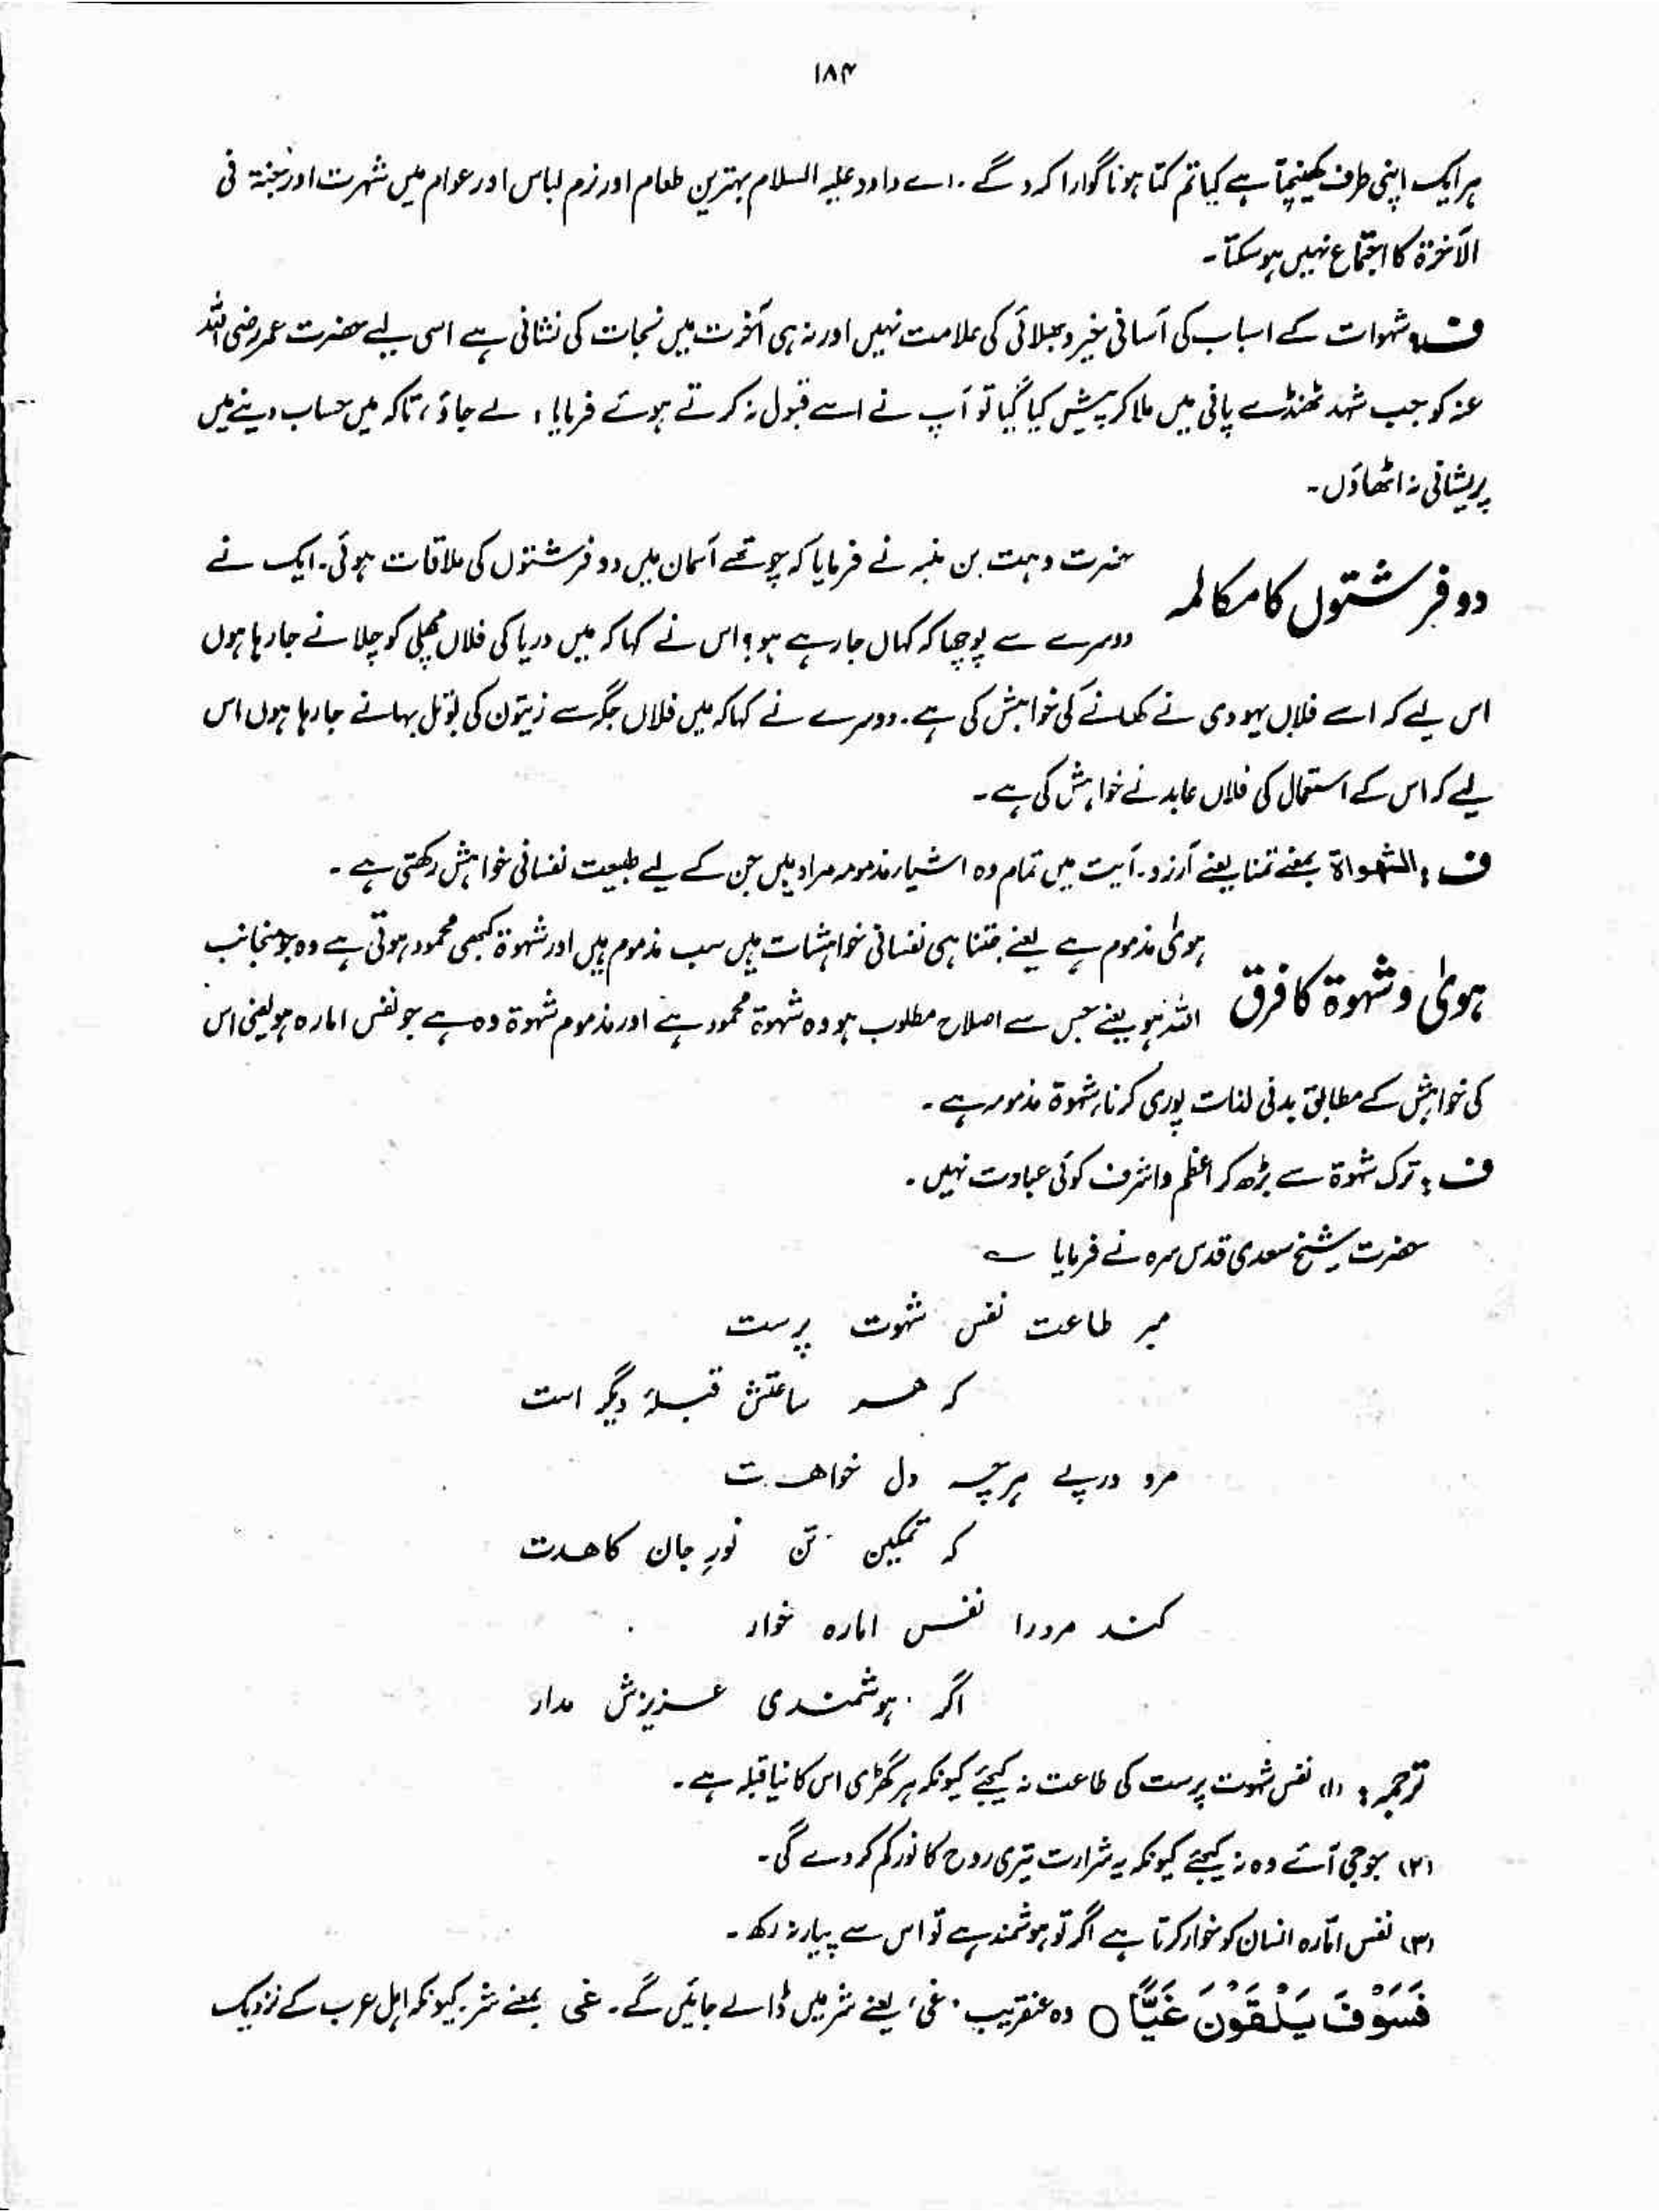 ۱۸۴
ہر ایک اپنی طرف کھینچتا ہے کیا تم کتا ہونا گوارا کرو گے ۔ اے داود علیہ السلام بہترین طعام اور نرم لباس اور عوام میں شہرت اور جنۃ فی
الآخرۃ کا اجتماع نہیں ہو سکتا ۔
ف : شہوات کے اسباب کی آسانی خیر و بھلائی کی علامت نہیں اور نہ ہی آخرت میں نجات کی نشانی ہے اسی لیے حضرت عمر رضی اللہ
عنہ کو جب شہد ٹھنڈے پانی میں ملا کر پیش کیا گیا تو آپ نے اسے قبول نہ کرتے ہوئے فرمایا ، لے جاؤ ، تاکہ میں حساب دینے میں
پریشانی نہ اٹھاؤں ۔
دو فرشتوں کا مکالمہ
حضرت وہب بن منبہ نے فرمایا کہ چوتھے آسمان میں دو فرشتوں کی ملاقات ہوئی ۔ ایک نے
دوسرے سے پوچھا کہ کہاں جا رہے ہو ؟ اس نے کہا کہ میں دریا کی فلاں مچھلی کو چلانے جا رہا ہوں
اس لیے کہ اسے فلاں یہودی نے کھانے کی خواہش کی ہے ۔ دوسرے نے کہا کہ میں فلاں جگہ سے زیتون کی بوتل بہانے جا رہا ہوں اس
لیے کہ اس کے استعمال کی فلاں عابد نے خواہش کی ہے ۔
ف : الشھواۃ بمعنے تمنا یعنے آرزو ۔ آیت میں تمام وہ اشیاء مذمومہ مراد ہیں جن کے لیے طبیعت نفسانی خواہش رکھتی ہے ۔
ہویٰ و شہوۃ کا فرق
ہویٰ مذموم ہے یعنے جتنا ہی نفسانی خواہشات ہیں سب مذموم ہیں اور شہوۃ کبھی محمود ہوتی ہے وہ جو منجانب
اللہ ہو یعنے جس سے اصلاح مطلوب ہو وہ شہوۃ محمود ہے اور مذموم شہوۃ وہ ہے جو نفس امارہ ہو یعنی اس
کی خواہش کے مطابق بدنی لذات پوری کرنا شہوۃ مذمومہ ہے ۔
ف : ترک شہوۃ سے بڑھ کر اعظم و اشرف کوئی عبادت نہیں ۔
حضرت شیخ سعدی قدس سرہ نے فرمایا ؎
مبر طاعت نفس شہوت پرست
کہ ھر ساعتش قبلۂ دیگر است
مرو درپے ہرچہ دل خواھدت
کہ تمکین تن نورِ جان کاھدت
کند مرد را نفس امارہ خوار
اگر ہوشمندی عزیزش مدار
ترجمہ : (۱) نفس شہوت پرست کی طاعت نہ کیجئے کیونکہ ہر گھڑی اس کا نیا قبلہ ہے ۔
(۲) جو جی آئے وہ نہ کیجئے کیونکہ یہ شرارت تیری روح کا نور کم کر دے گی ۔
(۳) نفس امّارہ انسان کو خوار کرتا ہے اگر تو ہوشمند ہے تو اس سے پیار نہ رکھ ۔
فَسَوْفَ يَلْقَوْنَ غَيًّا ○ وہ عنقریب ' غی ' یعنے شر میں ڈالے جائیں گے ۔ غی بمعنے شر کیونکہ اہل عرب کے نزدیک